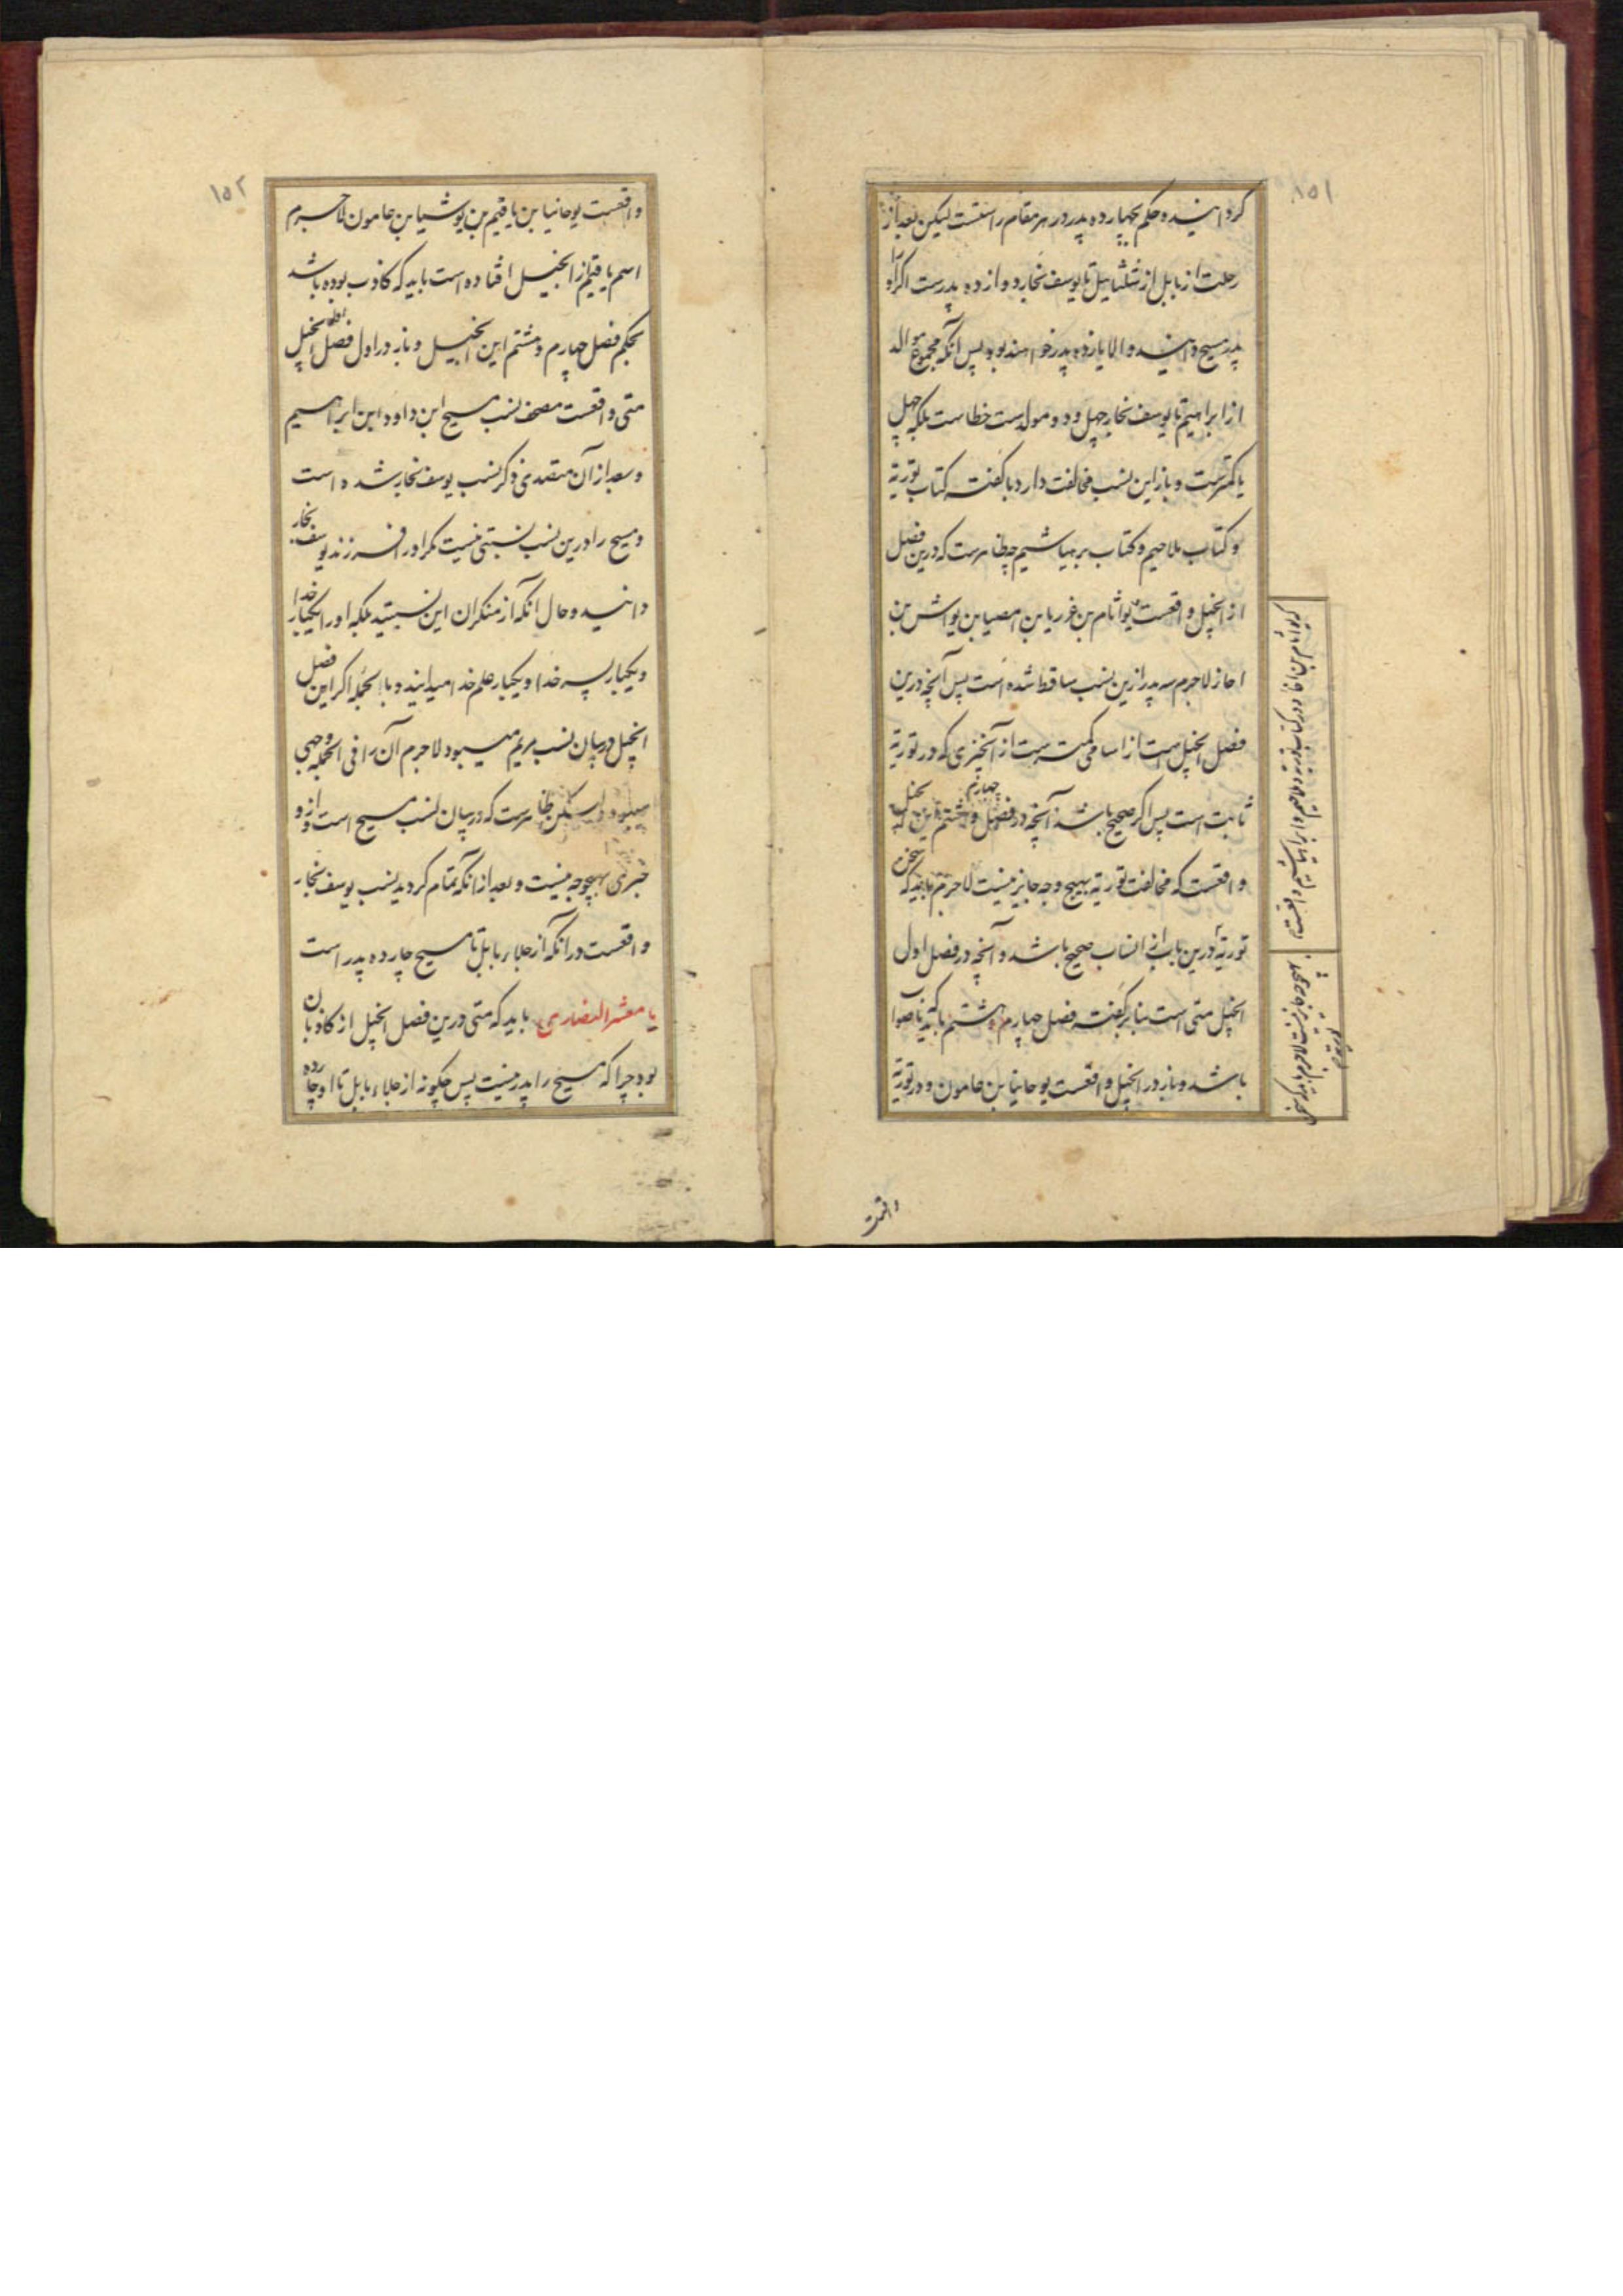 ١٥١
کردانیده و حکم بچهارده پدر در هر مقام راستست لیکن بعد از
رحلت از بابل از شلثاییل تا یوسف نجار دوازده پدرست اگر او را
پدر مسیح دانید والا یازده پدر خواهند بود پس آنکه مجموع موالد
از ابراهیم تا یوسف نجار چهل و دو مولدست خطاست بلکه چهل
یا کمترست و باز این نسب مخالفت دارد با گفته کتاب توریة
و کتاب ملاحیم و کتاب برهیاشیم چه ظاهرست که درین فصل
از انجیل واقعست یواثام بن غوریا بن امصیا بن یواش بن
احاز لاجرم سه پدر ازین نسب ساقط شده است پس آنچه درین
فصل انجیل است از اسامی کمترست از آنچیزی که در توریة
ثابت است پس اگر صحیح باشد آنچه در فصل چهارم و هشتم این انجیل
واقعست که مخالفت توریة بهیچ وجه جایز نیست لاجرم باید که
توریة درین باب از انساب صحیح باشد و آنچه در فصل اول
انجیل متی است بنابر گفته فصل چهارم و هشتم باید که ناصواب
باشد و باز در انجیل واقعست یوحانیا بن حامون و در توریة
واقعست
١٥٢
واقعست یوحانیا بن یاقیم بن یوشیا بن حامون لاجرم
اسم یاقیم از انجیل افتاده است باید که کاذب بوده باشد
بحکم فصل چهارم و هشتم این انجیل و باز در اول فصل اول انجیل
متی واقعست مصحف نسب مسیح ابن داود ابن ابراهیم
و بعد از آن متصدی ذکر نسب یوسف نجار شده است
و مسیح را درین نسب نسبتی نیست مگر او را فرزند یوسف نجار
دانید و حال آنکه از منکران این نسبتید بلکه او را یکبار خدا
و یکبار پسر خدا و یکبار علم خدا میدانید و بالجمله اگر این فصل
انجیل در بیان نسب مریم میبود لاجرم آن را فی الجمله وجهی
میبود ولیکن ظاهرست که در بیان نسب مسیح است و ازو
خبری بهیچوجه نیست و بعد از آنکه تمام کردید نسب یوسف نجار
واقعست در آنکه از جلاء بابل تا مسیح چارده پدر است
یا معشر النصاری باید که متی درین فصل انجیل از کاذبان
بود چرا که مسیح را پدر نیست پس چگونه از جلاء بابل تا او چارده